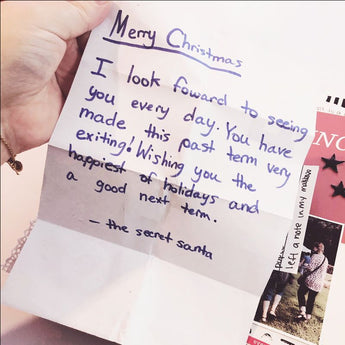 Merry Christmas
I look foward to seeing
you every day. You have
made this past term very
exiting! Wishing you the
happiest of holidays and
a good next term.
- the secret santa
left a note in my mailbox